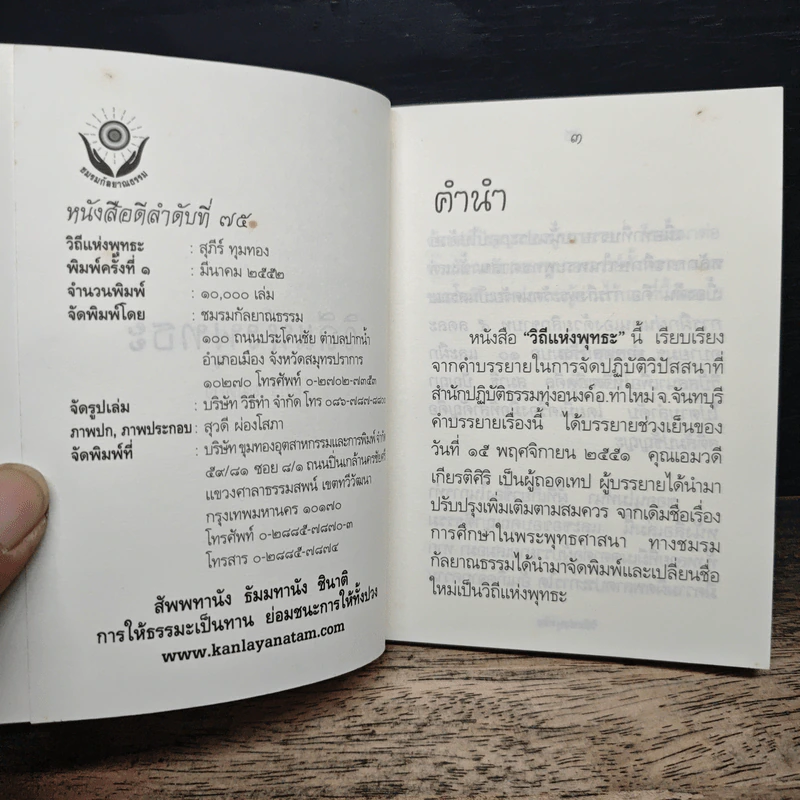 ชมรมกัลยาณธรรม
หนังสือดีลำดับที่ ๗๕
วิถีแห่งพุทธะ : สุภีร์ ทุมทอง
พิมพ์ครั้งที่ ๑ : มีนาคม ๒๕๕๒
จำนวนพิมพ์ : ๑๐,๐๐๐ เล่ม
จัดพิมพ์โดย : ชมรมกัลยาณธรรม
๑๐๐ ถนนประโคนชัย ตำบลปากน้ำ
อำเภอเมือง จังหวัดสมุทรปราการ
๑๐๒๗๐ โทรศัพท์ ๐-๒๗๐๒-๗๓๕๓
จัดรูปเล่ม : บริษัท วิธีทำ จำกัด โทร ๐๘๖-๗๘๗-
ภาพปก, ภาพประกอบ : สุวดี ผ่องโสภา
จัดพิมพ์ที่ : บริษัท ขุมทองอุตสาหกรรมและการพิมพ์ จำกัด
๕๙/๘๑ ซอย ๘/๑ ถนนปิ่นเกล้านครชัยศรี
แขวงศาลาธรรมสพน์ เขตทวีวัฒนา
กรุงเทพมหานคร ๑๐๑๗๐
โทรศัพท์ ๐-๒๘๘๕-๗๘๗๐-๓
โทรสาร ๐-๒๘๘๕-๗๘๗๔
สัพพทานัง ธัมมทานัง ชินาติ
การให้ธรรมะเป็นทาน ย่อมชนะการให้ทั้งปวง
www.kanlayanatam.com
๓
คำนำ
หนังสือ “วิถีแห่งพุทธะ” นี้ เรียบเรียง
จากคำบรรยายในการจัดปฏิบัติวิปัสสนาที่
สำนักปฏิบัติธรรมทุ่งอนงค์อ.ท่าใหม่ จ.จันทบุรี
คำบรรยายเรื่องนี้ ได้บรรยายช่วงเย็นของ
วันที่ ๑๕ พฤศจิกายน ๒๕๕๑ คุณเอมวดี
เกียรติศิริ เป็นผู้ถอดเทป ผู้บรรยายได้นำมา
ปรับปรุงเพิ่มเติมตามสมควร จากเดิมชื่อเรื่อง
การศึกษาในพระพุทธศาสนา ทางชมรม
กัลยาณธรรมได้นำมาจัดพิมพ์และเปลี่ยนชื่อ
ใหม่เป็นวิถีแห่งพุทธะ